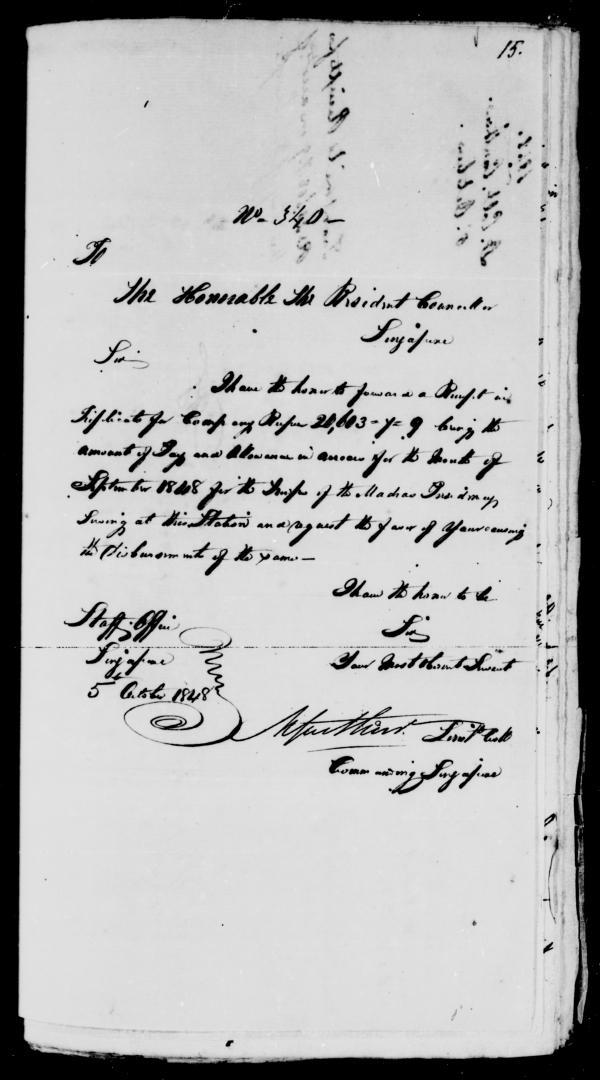 15.
No. 340-
To
The Honorable The Resident Councillor
Singapore
Sir
I have the honor to forward a Receipt in
Triplicate for Company Rupees 20,603=7=9 being the
amount of Pay and Allowance in arrears for the Month of
September 1848 for the Troops of the Madras Presidency
Serving at this Station and request the favor of Your causing
the Disbursement of the same-
I have the honor to be
Sir
Your Most Obient Servant
Staff Office
Singapore
5th October 1848
Lieut Col
Commanding Singapore